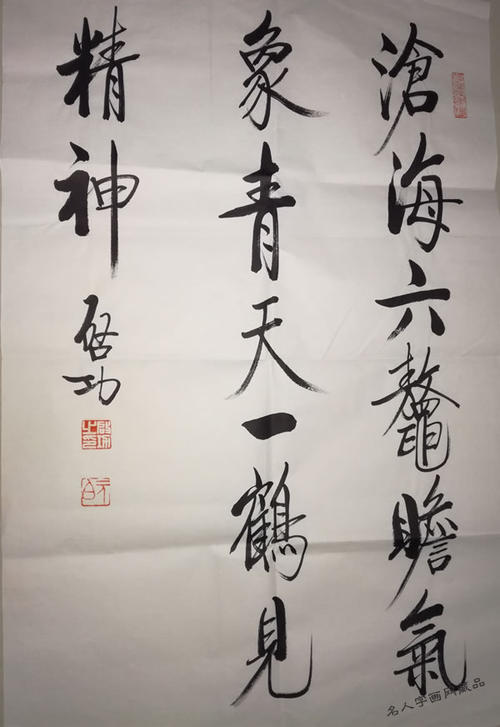 滄海六鼇瞻氣
象青天一鶴見
精神
啓功
名人字画网藏品